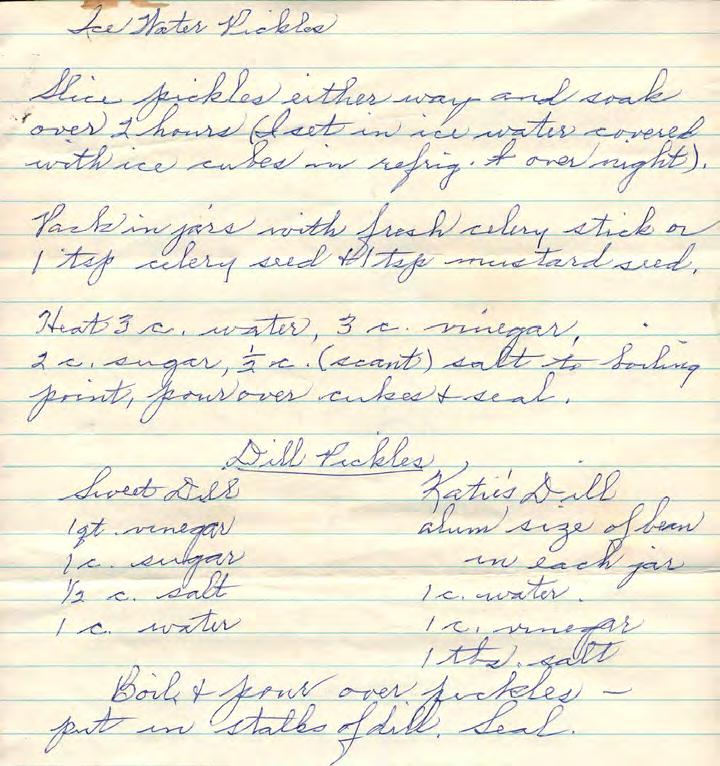 Ice Water Pickles
Slice pickles either way and soak
over 2 hours (I set in ice water covered
with ice cubes in refrig. & over night).
Pack in jars with fresh celery stick or
1 tsp celery seed & 1 tsp mustard seed.
Heat 3 c. water, 3 c. vinegar,
2 c. sugar, ½ c. (scant) salt to boiling
point, pour over cukes & seal.
Dill Pickles
Sweet Dill
1 qt. vinegar
1 c. sugar
1/2 c. salt
1 c. water
Katie's Dill
alum size of bean
in each jar
1 c. water.
1 c. vinegar
1 tbs. salt
Boil & pour over pickles –
put in stalks of dill. Seal.